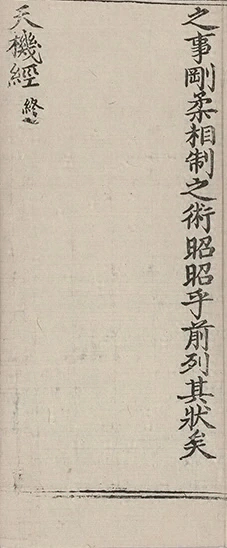 之事剛柔相制之術昭昭乎前列其狀矣
天機經終